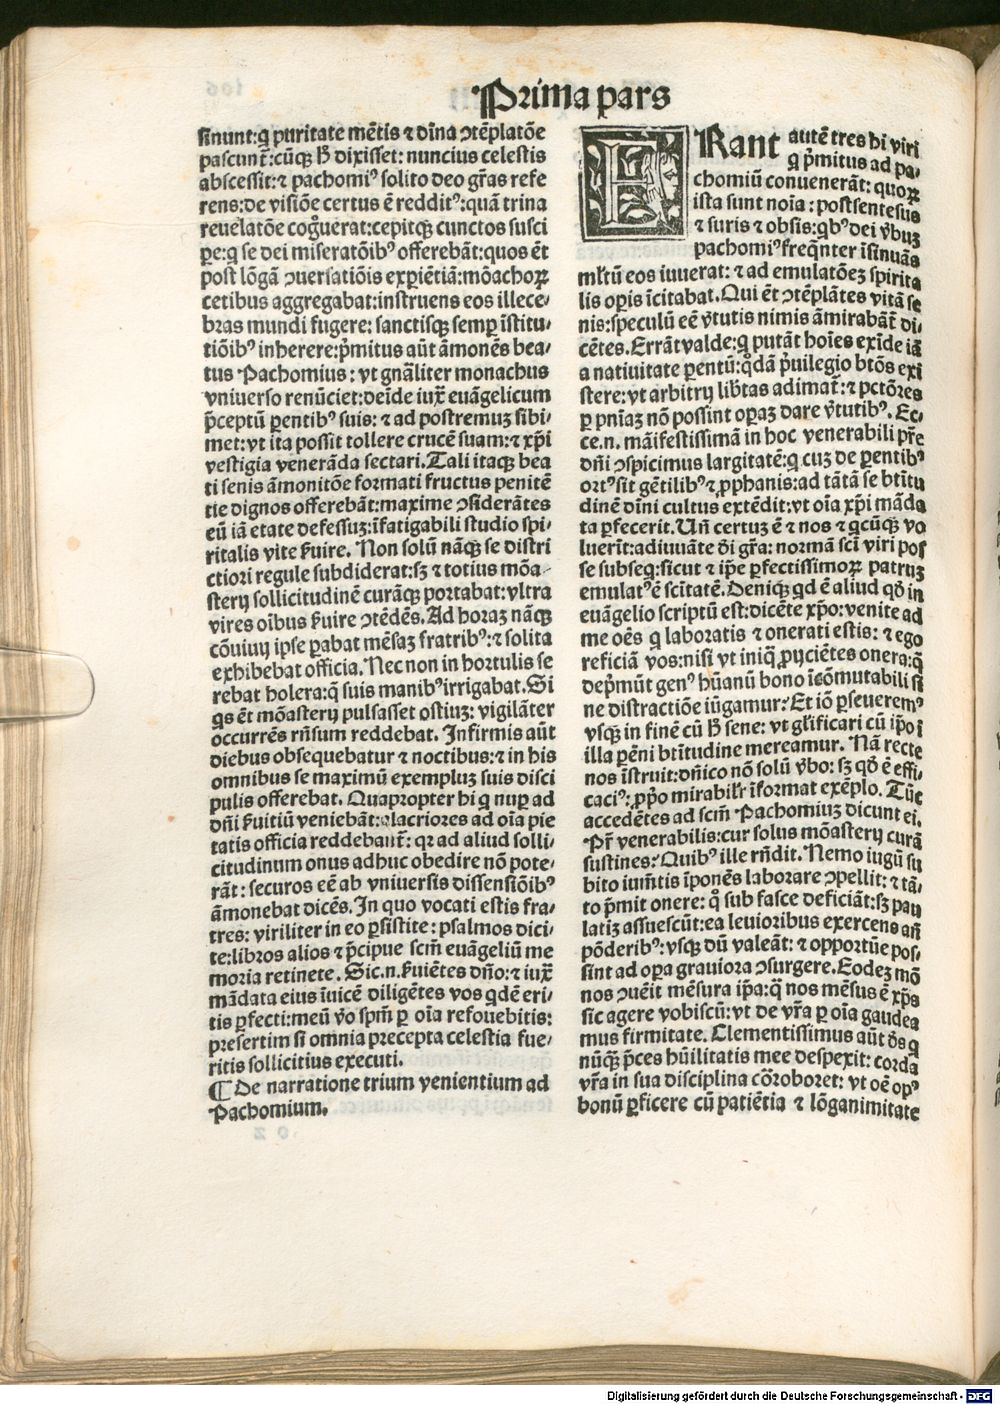 Prima pars
sinunt:q̃ puritate mẽtis ⁊ diũa ↄtẽplatõe
pascunt̃:cũq̃ħ dixisset: nuncius celestis
abscessit:⁊ pachomiꝰ solito deo gr̃as refe
rens:de visiõe certus ẽ redditꝰ:quã trina
reuelatõe cog̃uerat:cepitq̃ cunctos susci
pe:q̃ se dei miseratõibꝰ offerebãt:quos ẽt
post lõgã ↄuersatiõis expiẽtiã:mõachoꝝ
cetibus aggregabat:instruens eos illece⸗
bras mundi fugere: sanctisq̃ semp ĩstitu⸗
tiõibꝰ inherere:p̃mitus aũt ãmonẽs bea⸗
tus Pachomius: vt gnãliter monachus
vniuerso renũciet:deĩde iux̃ euãgelicum
p̃ceptũ pentibꝰ suis: ⁊ ad postremuꝫ sibi⸗
met:vt ita possit tollere crucẽ suam:⁊ xp̃i
vestigia venerãda sectari. Tali itaq̃ bea
ti senis ãmonitõe formati fructus penitẽ
tie dignos offerebãt:maxime ↄsiderãtes
eũ iã etate defessuꝫ:ĩfatigabili studio spi⸗
ritalis vite ẜuire. Non solũ nãq̃ se distri
ctiori regule subdiderat:sꝫ ⁊ totius mõa⸗
sterij sollicitudinẽ curãq̃ portabat:vltra
vires oĩbus ẜuire ↄtẽdẽs. Ad horaꝫ nãq̃
cõuiuij ipse pabat mẽsaꝫ fratribꝰ:⁊ solita
exhibebat officia. Nec non in hortulis se
rebat holera:q̃ suis manibꝰ irrigabat. Si
q̃s ẽt mõasterij pulsasset ostiuꝫ: vigilãter
occurrẽs rñsum reddebat. Infirmis aũt
diebus obsequebatur ⁊ noctibus:⁊ in his
omnibus se maximũ exempluꝫ suis disci
pulis offerebat. Quapropter hi q̃ nup ad
dñi ẜuitiũ veniebãt:alacriores ad oĩa pie
tatis officia reddebant̃: qꝛ ad aliud solli⸗
citudinum onus adhuc obedire nõ pote⸗
rãt: securos eẽ ab vniuersis dissensiõibꝰ
ãmonebat dicẽs. In quo vocati estis fra⸗
tres: viriliter in eo psistite: psalmos dici⸗
te:libros alios ⁊ p̃cipue scm̃ euãgeliũ me
moria retinete. Sic.n.ẜuiẽtes dño:⁊ iux̃
mãdata eius ĩuicẽ diligẽtes vos qdẽ eri⸗
tis pfecti:meũ ṽo spm̃ p oĩa refouebitis:
presertim si omnia precepta celestia fue⸗
ritis sollicitius executi.
¶ De narratione trium venientium ad
Pachomium.
ERant autẽ tres hi viri
q̃ p̃mitus ad pa⸗
chomiũ conuenerãt: quoꝝ
ista sunt noĩa: postsentesius
⁊ suris ⁊ obsis:qbꝰ dei ṽbuꝫ
pachomiꝰ freq̃nter ĩsinuãs
ml̃tũ eos iuuerat: ⁊ ad emulatõeꝫ spirita
lis opis ĩcitabat. Qui ẽt ↄtẽplãtes vitã se
nis:speculũ eẽ ṽtutis nimis ãmirabãt̃ di⸗
cẽtes. Errãt valde:q̃ putãt hoĩes exĩde iã
a natiuitate pentũ:q̃dã p̃uilegio btõs exi
stere:vt arbitrij lib̃tas adimat̃:⁊ pctõres
p pnĩaꝫ nõ possint opaꝫ dare ṽtutibꝰ. Ec⸗
ce.n. mãifestissimã in hoc venerabili pr̃e
dñi ↄspicimus largitatẽ:q̃ cuꝫ de pentibꝰ
ortꝰ sit gẽtilibꝰ ⁊ pphanis:ad tãtã se btĩtu
dinẽ diũi cultus extẽdit:vt oĩa xp̃i mãda
ta pfecerit. Uñ certuꝫ ẽ ⁊ nos ⁊ q̃cũq̃ vo
luerĩt:adiuuãte dei gr̃a: normã scĩ viri pos
se subseq̃:sicut ⁊ ip̃e pfectissimoꝝ patruꝫ
emulatꝰ ẽ scĩtatẽ. Deniq̃ qd ẽ aliud qđ in
euãgelio scriptũ est:dicẽte xp̃o: venite ad
me oẽs q̃ laboratis ⁊ onerati estis: ⁊ ego
reficiã vos:nisi vt iniq̃ pijciẽtes onera:q̃
dep̃mũt genꝰ hũanũ bono ĩcõmutabili si
ne distractiõe iũgamur? Et iõ pseueremꝰ
vsq̃ in finẽ cũ ħ sene: vt gl̃ificari cũ ip̃o ĩ
illa pẽni btĩtudine mereamur. Nã recte
nos ĩstruit:dñico nõ solũ ṽbo: sꝫ qđ ẽ effi⸗
caciꝰ: pp̃o mirabil̃r ĩformat exẽplo. Tũc
accedẽtes ad scm̃ Pachomiuꝫ dicunt ei.
Pr̃ venerabilis:cur solus mõasterij curã
sustines? Quibꝰ ille rñdit. Nemo iugũ su
bito iumẽtis ĩponẽs laborare ↄpellit: ⁊ tã⸗
to p̃mit onere: q̃ sub fasce deficiãt:sꝫ pau
latiꝫ assuescũt:ea leuioribus exercens añ
põderibꝰ: vsq̃ dũ valeãt: ⁊ opportũe pos⸗
sint ad opa grauiora ↄsurgere. Eodeꝫ mõ
nos ↄuẽit mẽsura ip̃a:q̃ nos mẽsus ẽ xp̃s
sic agere vobiscũ: vt de vr̃a p oĩa gaudea
mus firmitate. Clementissimus aũt ds̃ q
nũq̃ p̃ces hũilitatis mee despexit: corda
vr̃a in sua disciplina cõroboret: vt oẽ opꝰ
bonũ pficere cũ patiẽtia ⁊ lõganimitate
Digitalisierung gefördert durch die Deutsche Forschungsgemeinschaft - DFG